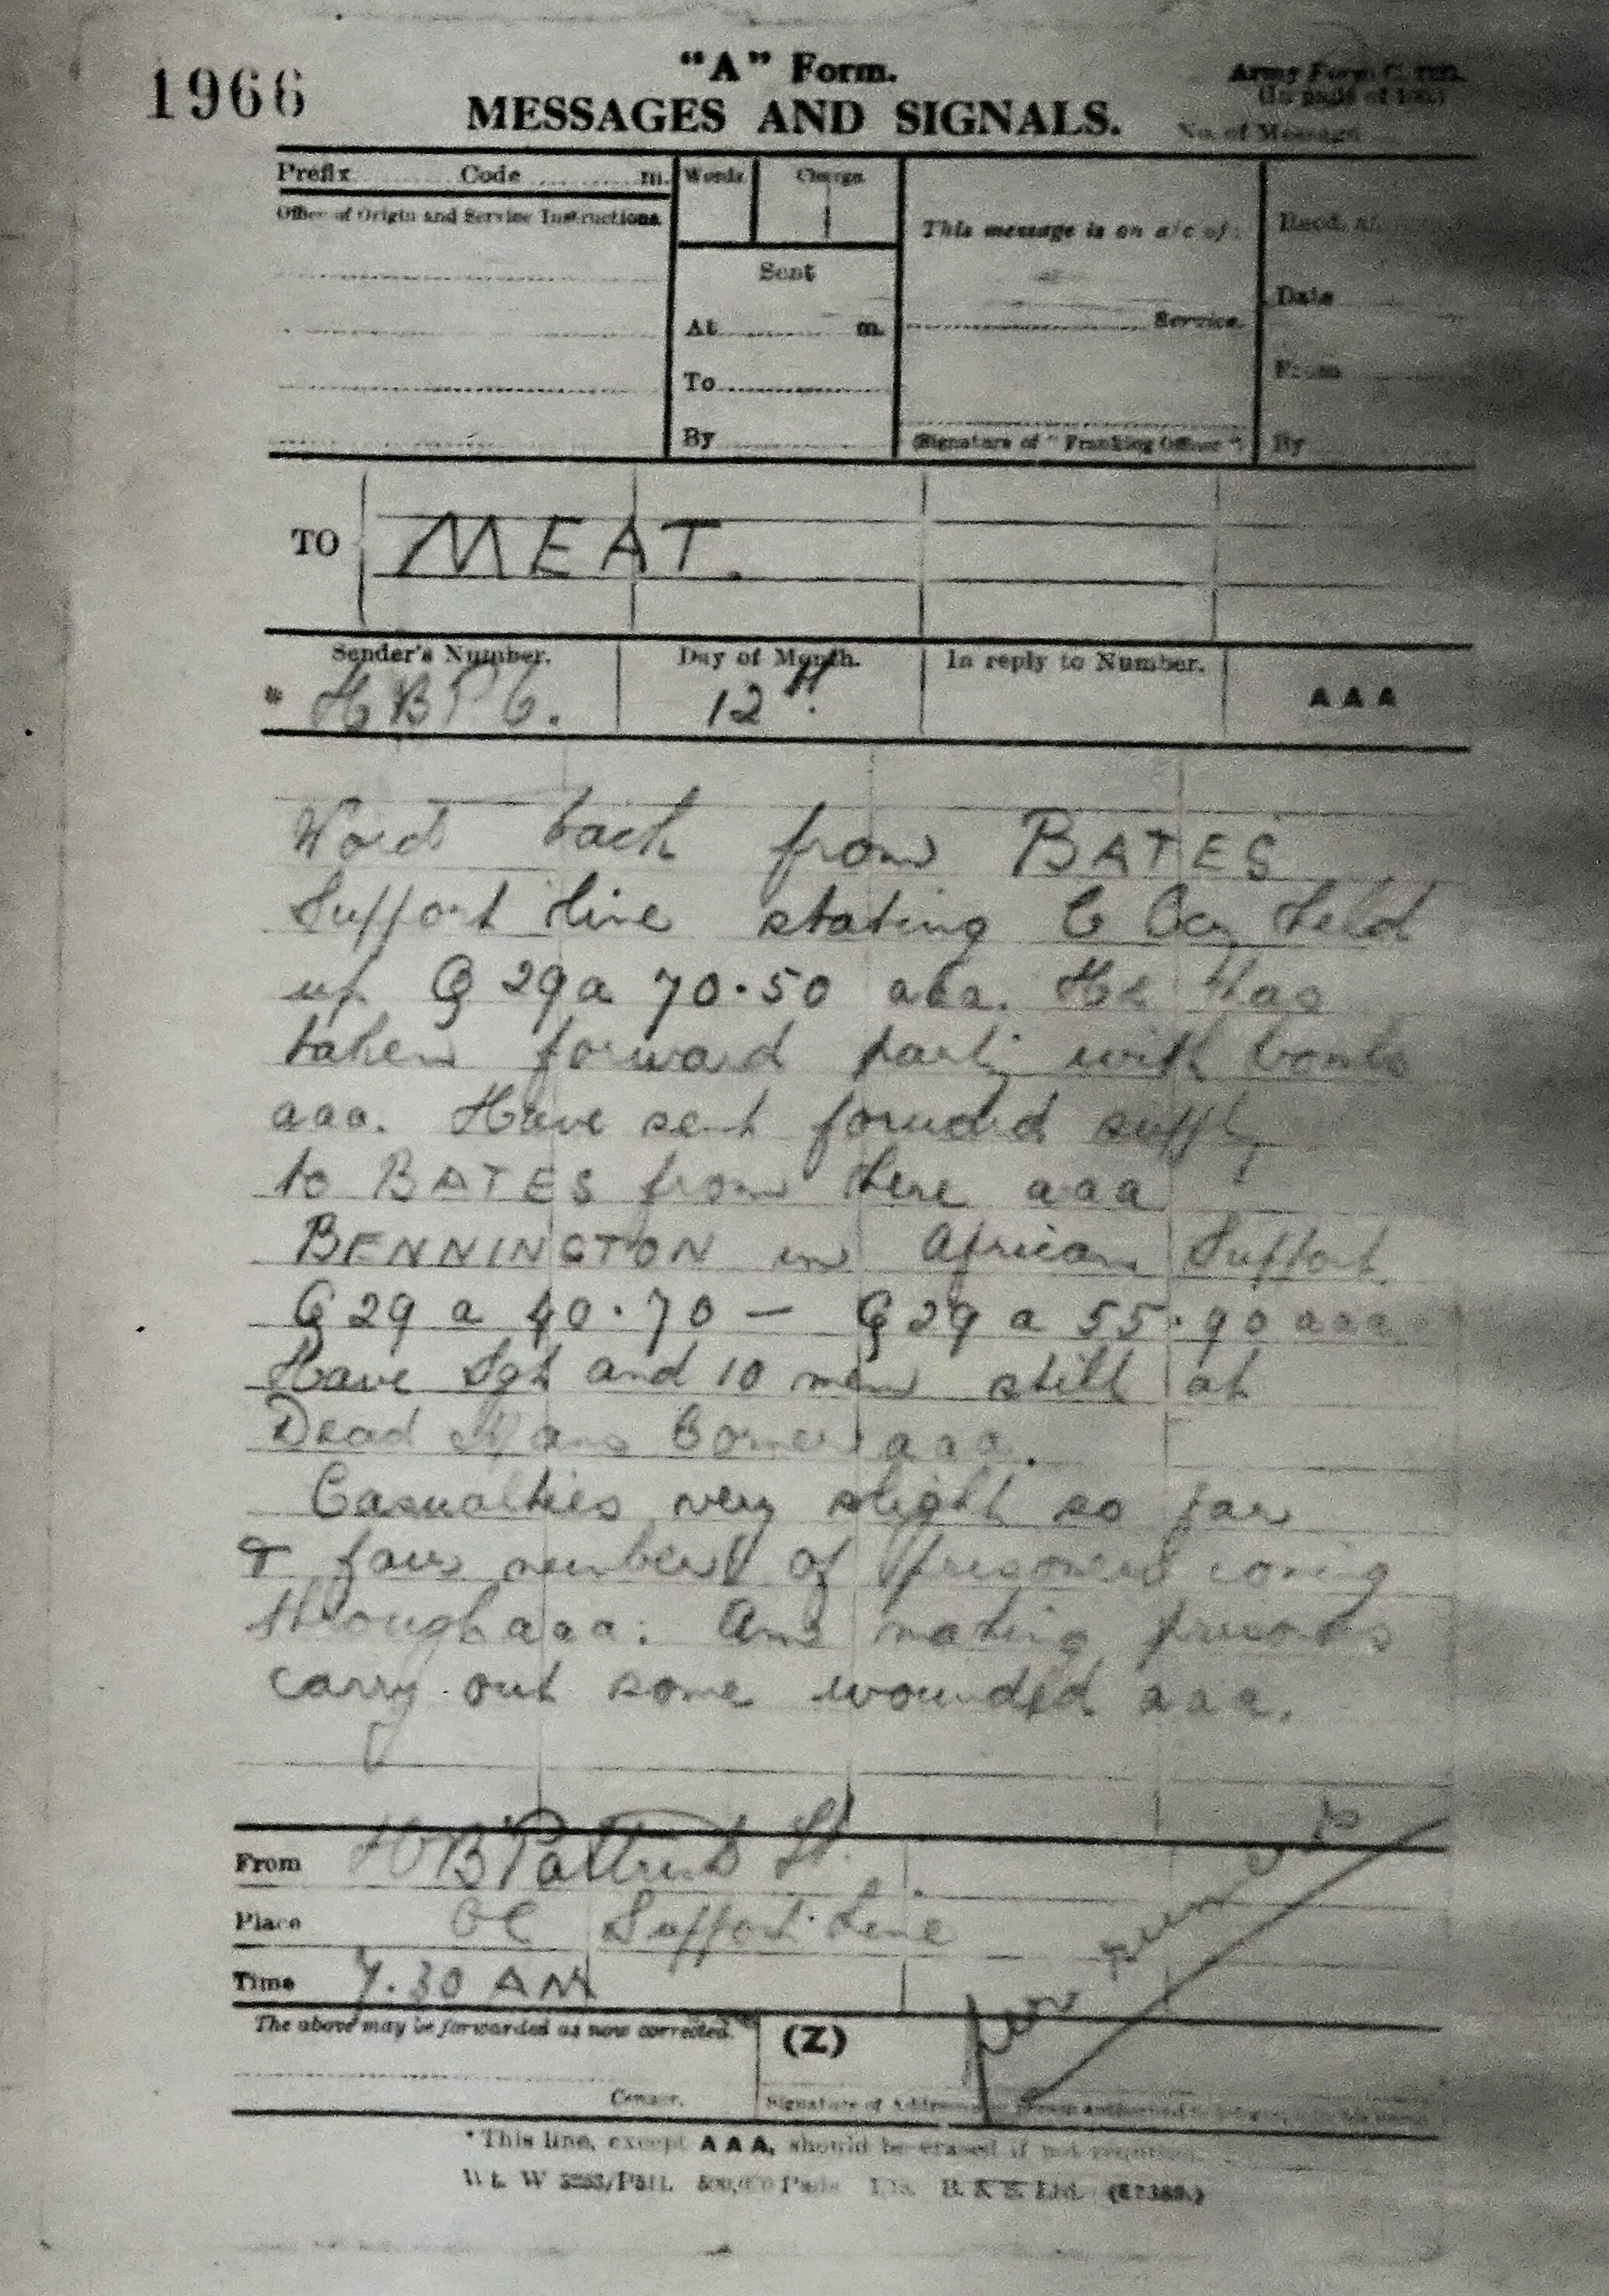 1966
"A" Form.
MESSAGES AND SIGNALS.
Army Form C.
No. of Message
Prefix Code m.
Words Charge
Office of Origin and Service Instructions.
Sent
At m.
To
By
This message is on a/c of:
Service.
(Signature of "Franking Officer")
Recd. at
Date
From
By
TO MEAT.
Sender's Number. Day of Month. In reply to Number.
* HBP6. 12th. AAA
Word back from BATES
Support Line stating C Coy held
up G 29a 70.50 aaa. He has
taken forward party with bombs
aaa. Have sent forward supply
to BATES from here aaa
BENNINGTON in African Support
G 29 a 40.70 — G 29 a 55.90 aaa
Have Sgt and 10 men still at
Dead Mans Corner aaa.
Casualties very slight so far
+ fair number of prisoners coming
through aaa. Am making prisoners
carry out some wounded aaa.
From HB Lt.
Place OC Support Line
Time 7.30 AM
The above may be forwarded as now corrected.
(Z)
Censor.
Signature of
per runner
*This line, except AAA, should be erased if not required.